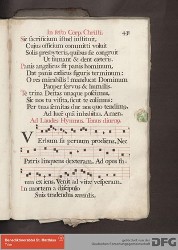 In festo Corp. Christi. 48
Sic sacrificium istud instituit,
Cujus officium committi voluit
Solis presbyteris, quibus sic congruit
Ut sumant & dent ceteris.
Panis angelicus fit panis hominum,
Dat panis cœlicus figuris terminum:
O res mirabilis! manducat Dominum
Pauper servus & humilis.
Te trina Deitas unaque poscimus,
Sic nos tu visita, sicut te colimus:
Per tuas semitas duc nos quo tendimus,
Ad lucem quam inhabitas. Amen.
Ad Laudes Hymnus.
Verbum supernum prodiens, Nec
Patris linquens dexteram, Ad opus su-
um exiens, Venit ad vitæ vesperam.
In mortem a discipulo
Suis tradendus æmulis,
DFG